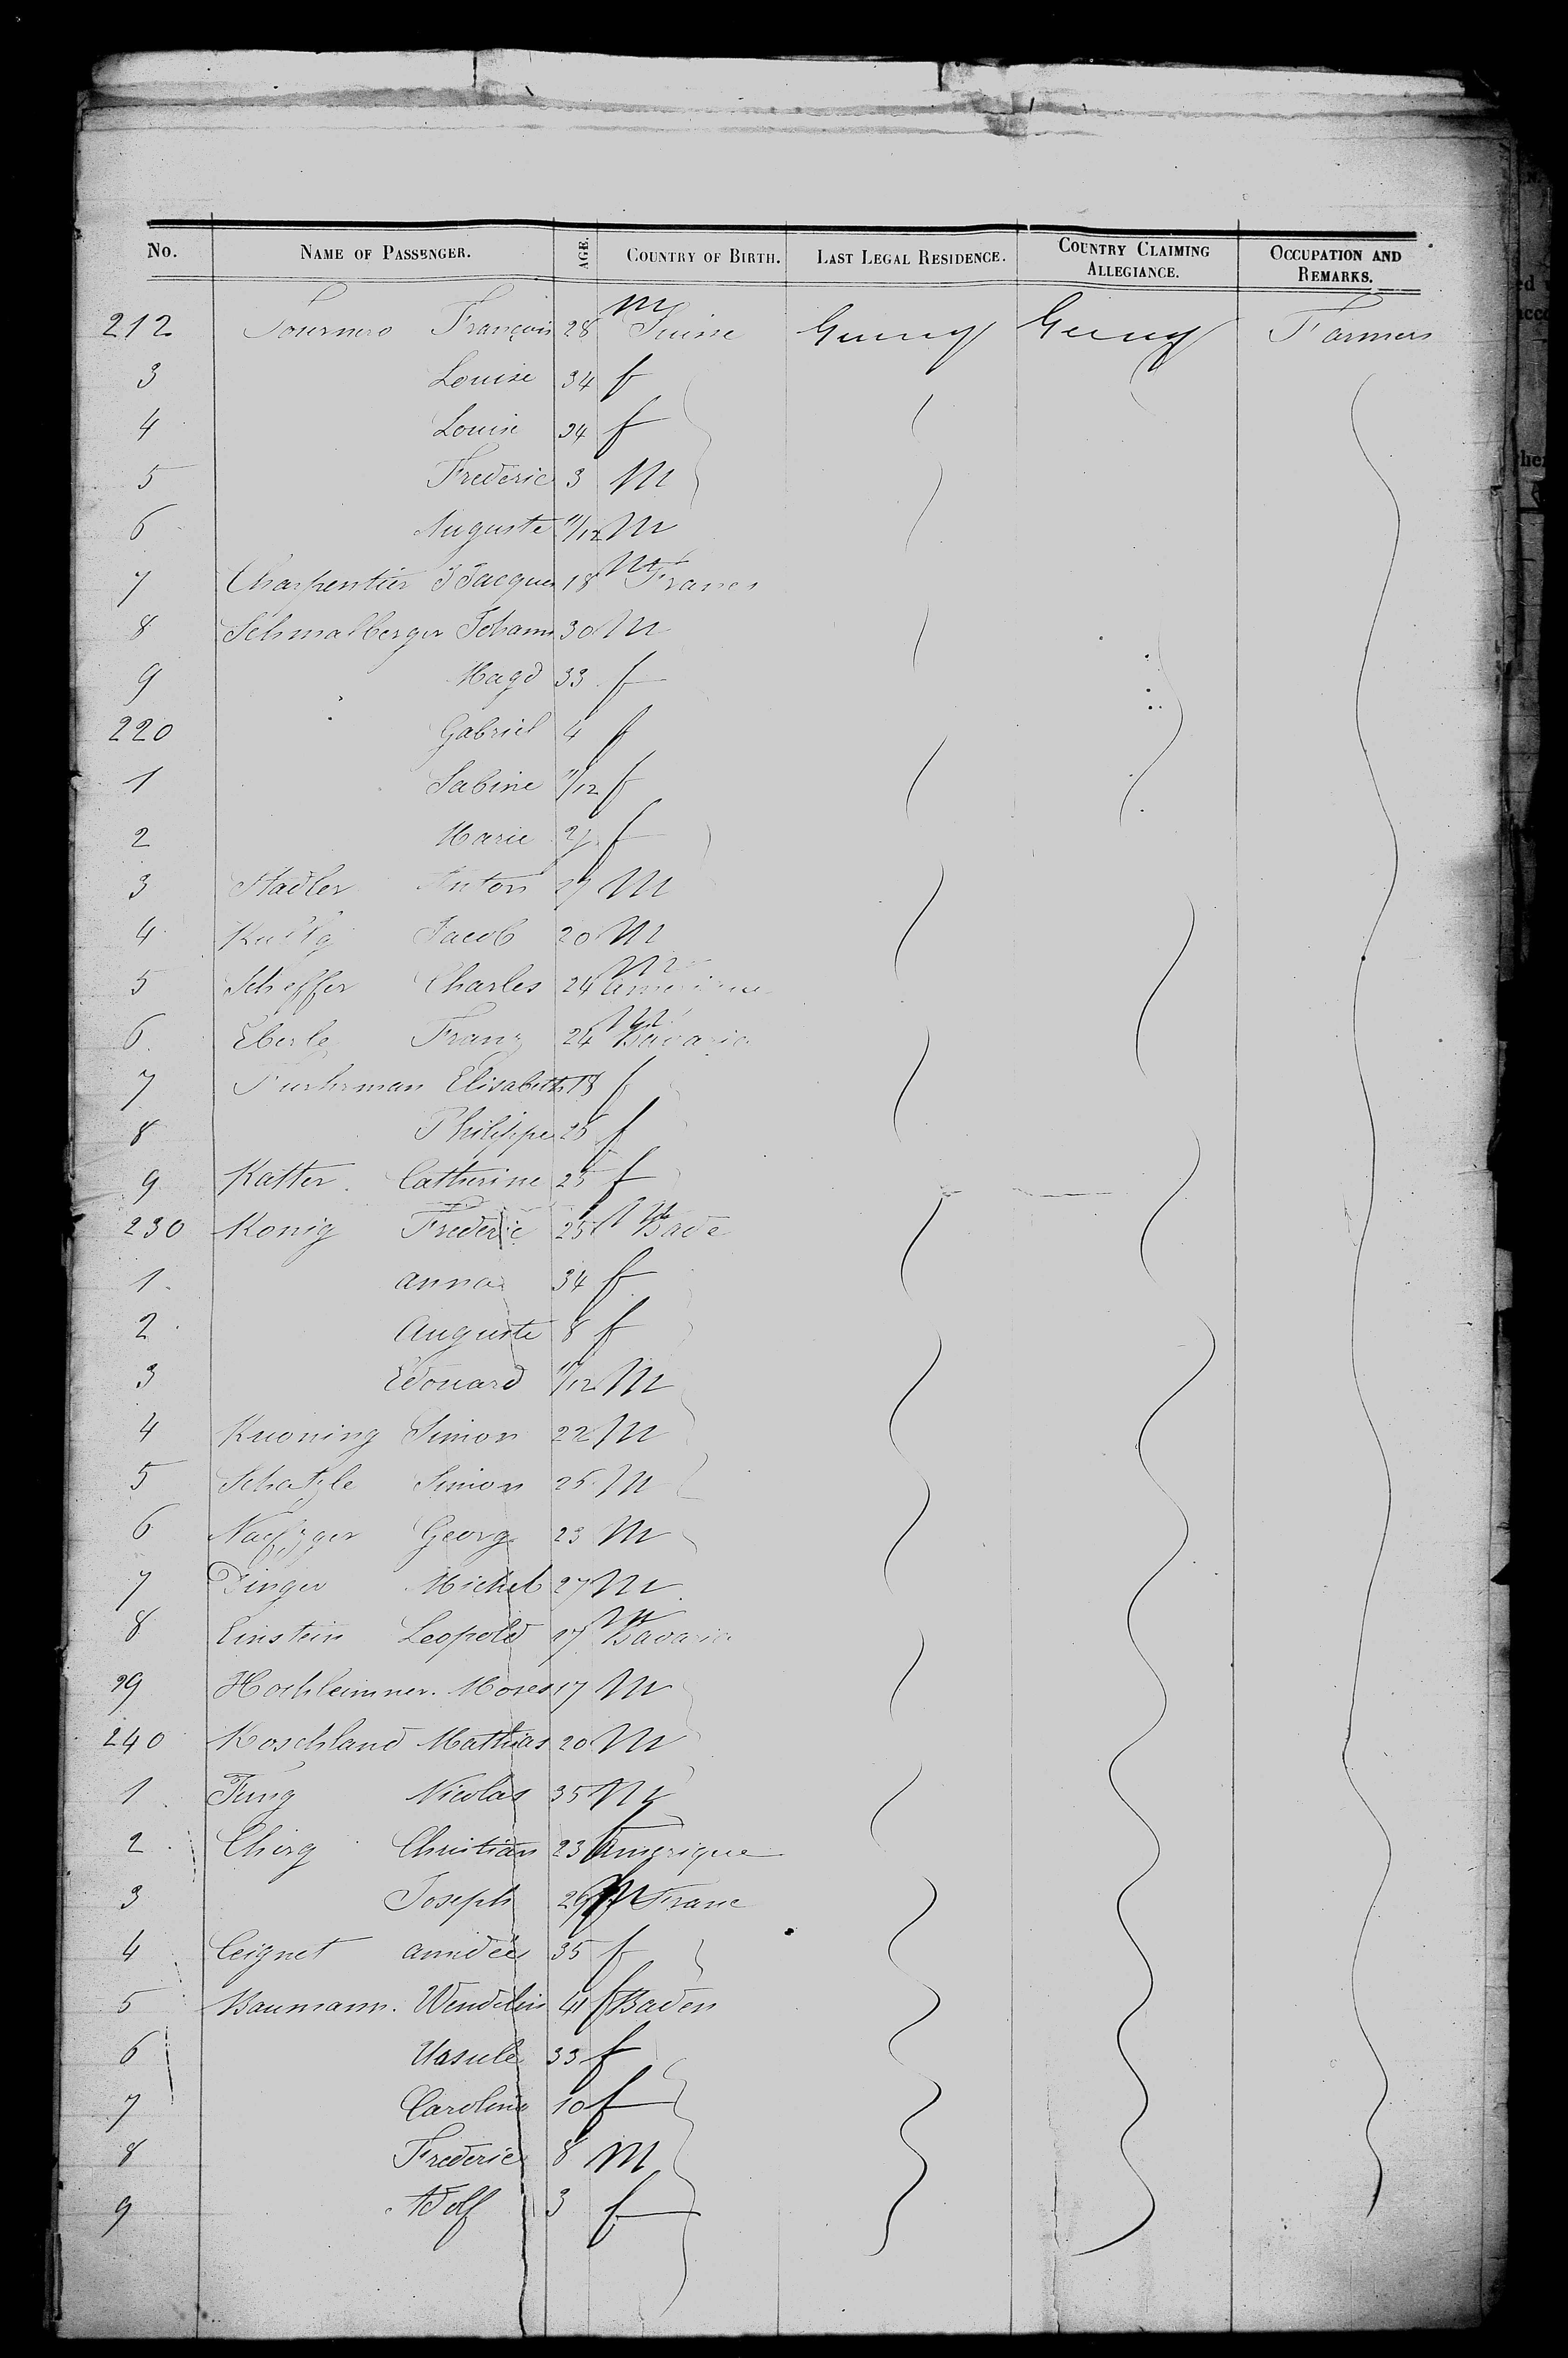 No. NAME OF PASSENGER. AGE. COUNTRY OF BIRTH. LAST LEGAL RESIDENCE. COUNTRY CLAIMING ALLEGIANCE. OCCUPATION AND REMARKS.
212 François 28 m Suisse Germy Germy Farmers
3 Louise 34 f
4 Louise 34 f
5 Frederic 3 M
6 Auguste 11/12 M
7 Charpentier J Jacques 18 M France
8 Schmalberger Johann 30 M
9 Magd 33 f
220 Gabriel 4 f
1 Sabine 11/12 f
2 Marie f
3 Stadler Anton 27 M
4 Jacob 20 M
5 Scheffer Charles 24 M Amerique
6 Eberle Franz 24 M Bavaria
7 Fuhrman Elisabeth 18 f
8 Philippe 26 f
9 Katter Catherine 25 f
230 Konig Frederic 25 M Bade
1 anna 34 f
2 Auguste 8 f
3 Edouard 11/12 M
4 Kuoning Simon 22 M
5 Schatzle Simon 25 M
6 Georg 23 M
7 Dinger Michel 27 M
8 Einstein Leopold 27 M Bavaria
39 Hochleimner. Moses 17 M
240 Koschland Mathias 20 M
1 Jung Nicolas 35 M
2 Christian 23 Amerique
3 Joseph 26 M Franc
4 Ceignet amidée 35 f
5 Baumann. Wendelin 41 f Baden
6 Ursule 33 f
7 Caroline 10 f
8 Frederic 8 M
9 Adolf 3 f